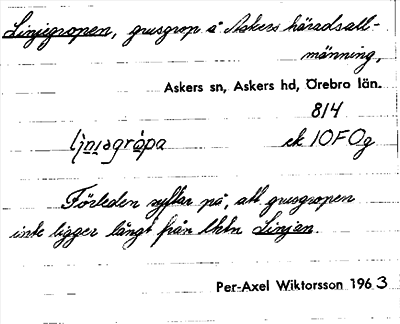 Linjegropen, grusgrop å Askers häradsall-
männing,
Askers sn, Askers hd, Örebro län.
814
ljnjagrǻpa ek 10F0g
Förleden syftar på, att grusgropen
inte ligger långt från lhtn Linjen.
Per-Axel Wiktorsson 1963